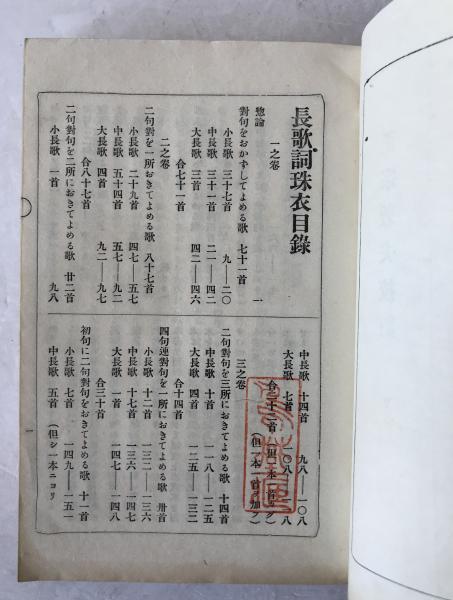 長歌詞珠衣目錄
一之卷
惣論 一
對句をおかずしてよめる歌 七十一首
小長歌 三十七首 九—二〇
中長歌 三十一首 二一—四二
大長歌 三首 四二—四六
合七十一首
二之卷
二句對を一所おきてよめる歌 八十七首
小長歌 二十九首 四七—五七
中長歌 五十四首 五七—九二
大長歌 四首 九二—九七
合八十七首
二句對を二所におきてよめる歌 廿二首
小長歌 一首 九八
中長歌 十四首 九八—一〇八
大長歌 七首 一〇八—一一八
合二十二首
三之卷
二句對を三所におきてよめる歌 十四首
中長歌 十首 一一八—一二五
大長歌 四首 一二五—一三二
合十四首
四句連對句を一所におきてよめる歌 卅首
小長歌 十二首 一三二—一三六
中長歌 十七首 一三六—一四七
大長歌 一首 一四七—一四八
合三十首
初句に二句對句をおきてよめる歌 十一首
小長歌 七首 一四九—一五一
中長歌 五首 (但シ一本ニヨリ